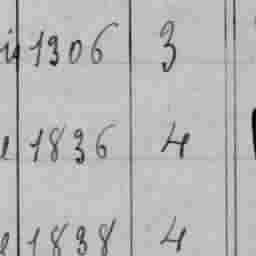 1306 3
1836 4
1838 4